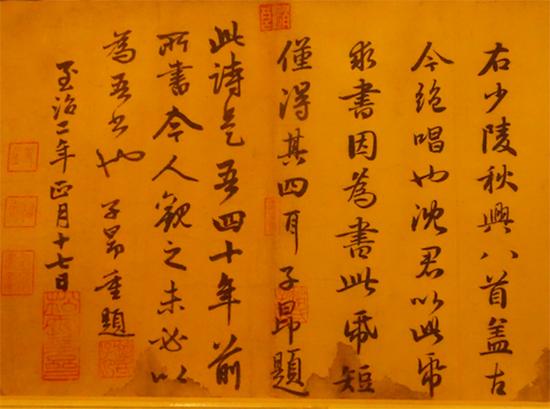 右少陵秋興八首盖古
今絶唱也沈君以此帋
求書因為書此帋短
僅得其四耳子昂題
此詩是吾四十年前
所書今人觀之未必以
為吾书也 子昂重題
至治二年正月十七日